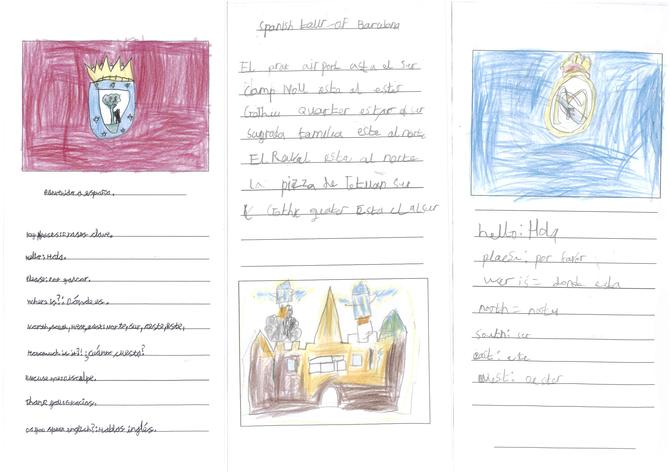 Bienvenido a españa.
Hello: Hola.
Please: por favor.
Where is?: Dónde es.
North, South, West, East: Norte, sur, oeste, este,
How much is it?: ¿cuánto cuesta?
Excuse me: disculpe.
Thank you: Gracias.
Do you speak english?: Hablas inglés.
Spanish tour of Barcalona
El prat airport esta el sur
Camp Noll esta el ester
Gothic quarter estar el sur
Sagrata familia esta al norte
EL Raval esta al norte
la pizza de Tetuan sur
Gothic quater Esta el alsur
hello: Hola
por favor
wer is= donde esta
north= norty
south: sur
east: este
west: